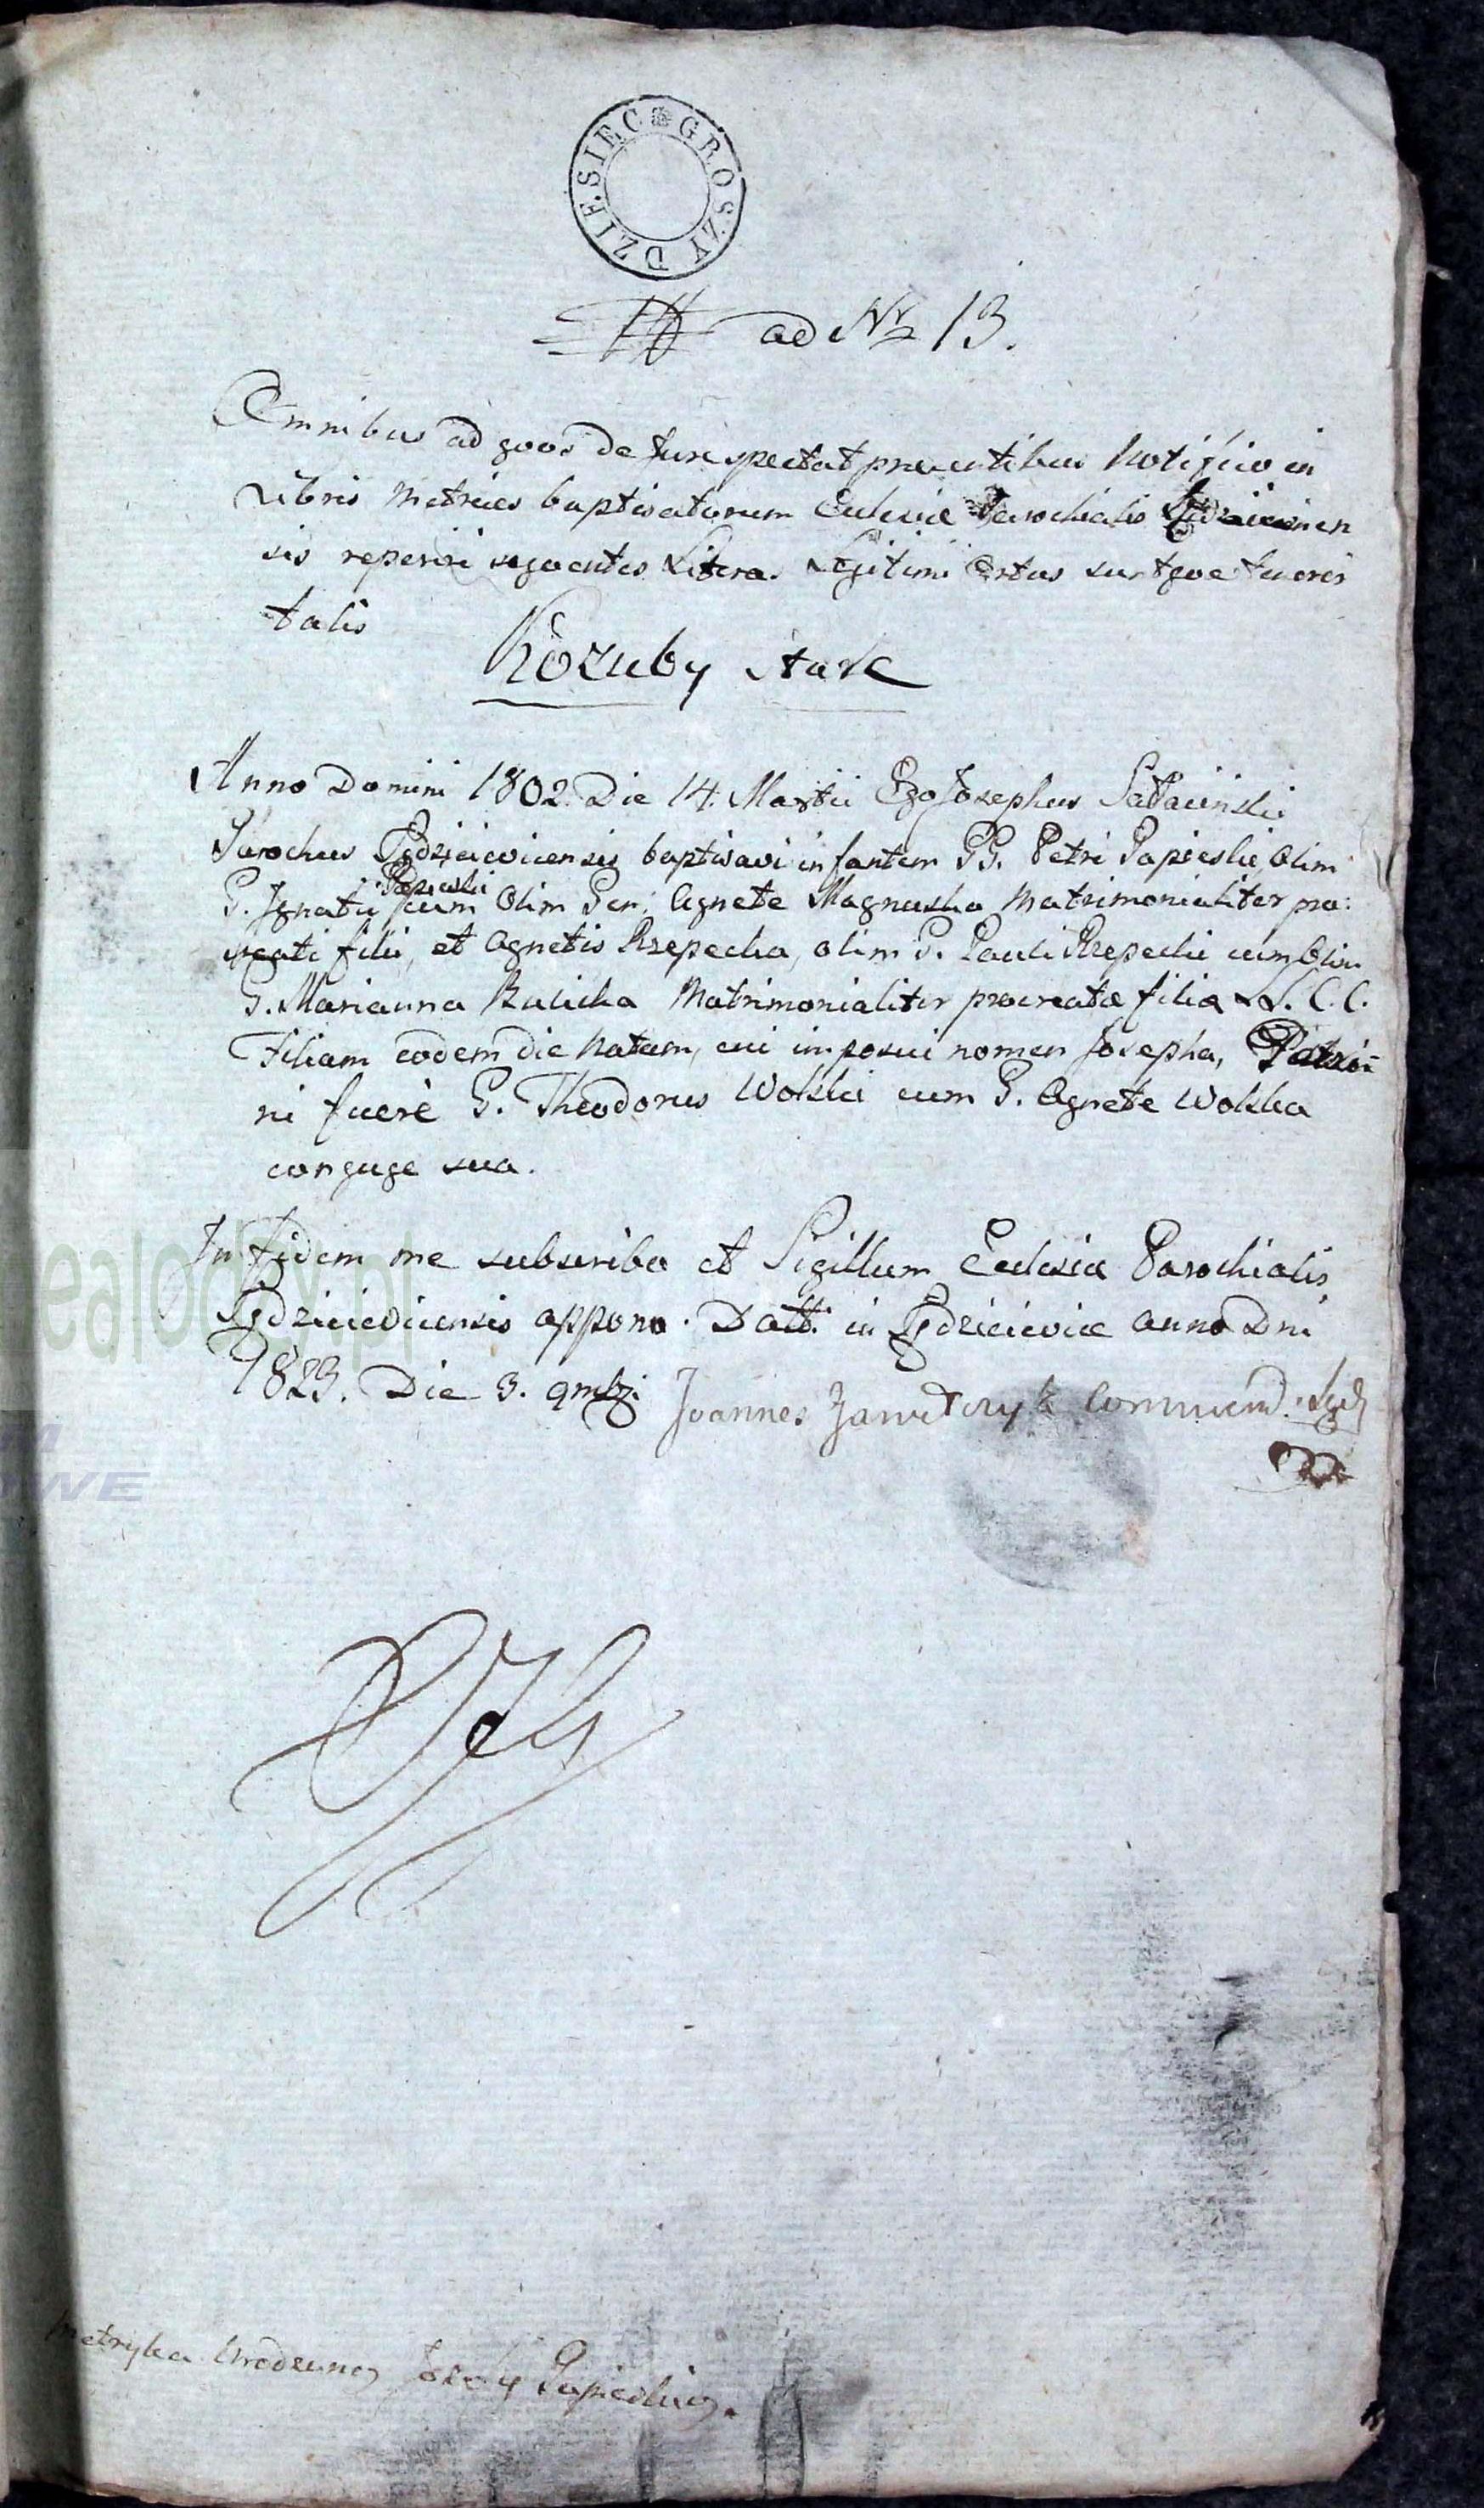 DZIESIĘC GROSZY
ad Nr 13.
Omnibus ad quos de Jure spectat praesentibus Notifico in
Libris Metrices baptisatorum Eclesiae Parochialis
sis reperiri sequentes Litera Legitimi Ortus suntque tenoris
talis
Kozuby Stare
Anno Domini 1802. Die 14. Martii Ego Josephus
Parochus Sędzieiovicensis baptisavi infantem GG. Petri Papieski, Olim
Papieski
G. Ignatii cum Olim Gen: Agnete Magnuska Matrimonialiter pro:
creati filii, et Agnetis Rzepecka, olim G. Pauli Rzepecki cum Olim
G. Marianna Kulicka Matrimonialiter procreatae filiae L. C. C.
Filiam eodem die Natam, cui imposui nomen Josepha, Patri-
ni fuere G. Theodorus Wolski cum G. Agnete Wolska
conjuge sua.
In fidem me subscribo et Sigillum Eclesiae Parochialis
Sędzieiovicensis appono. Datt: in Sędzieiovice anno Dni
1823. Die 3. 9mbr: Joannes Zawadczyk Commend: Sędz
ealodzy.pl
WE
Metryka Urodzenia Józefy Papieskiey.